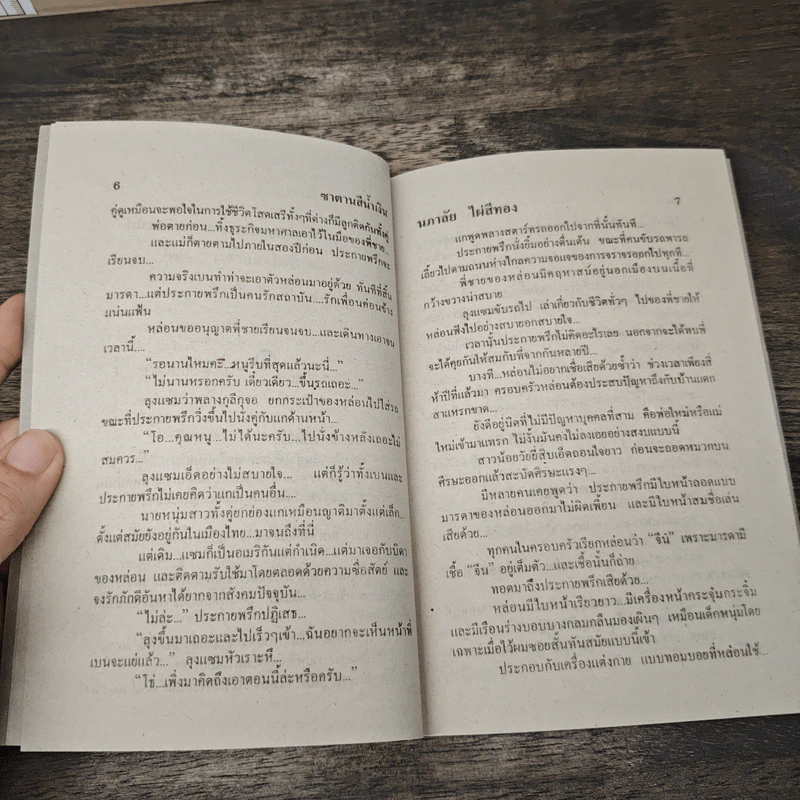 6
ซาตานสีน้ำเงิน
คู่ดูเหมือนจะพอใจในการใช้ชีวิตโสดเสรีทั้งๆที่ต่างก็มีลูกติดกันทั้งคู่
พ่อตายก่อน...ทิ้งธุรกิจมหาศาลเอาไว้ในมือของพี่ชาย...
และแม่ก็ตายตามไปภายในสองปีก่อน ประกายพรึกจะ
เรียนจบ...
ความจริงเบนทำท่าจะเอาตัวหล่อนมาอยู่ด้วย ทันทีที่สิ้น
มารดา...แต่ประกายพรึกเป็นคนรักสถาบัน....รักเพื่อนค่อนข้าง
แน่นแฟ้น
หล่อนขออนุญาตพี่ชายเรียนจนจบ...และเดินทางเอาจน
เวลานี้....
“รอนานไหมคะ...หนูรีบที่สุดแล้วนะนี่...”
“ไม่นานหรอกครับ เดี๋ยวเดียว...ขึ้นรถเถอะ...”
ลุงแซมว่าพลางกุลีกุจอ ยกกระเป๋าของหล่อนไปใส่รถ
ขณะที่ประกายพรึกวิ่งขึ้นไปนั่งคู่กับแกด้านหน้า...
“โอ...คุณหนู ...ไม่ได้นะครับ...ไปนั่งข้างหลังเถอะไม่
สมควร...”
ลุงแซมเอ็ดอย่างไม่สบายใจ... แต่ก็รู้ว่าทั้งเบนและ
ประกายพรึกไม่เคยคิดว่าแกเป็นคนอื่น...
นายหนุ่มสาวทั้งคู่ยกย่องแกเหมือนญาติมาตั้งแต่เล็ก...
ตั้งแต่สมัยยังอยู่กันในเมืองไทย...มาจนถึงที่นี่
แต่เดิม...แซมก็เป็นอเมริกันแต่กำเนิด...แต่มาเจอกับบิดา
ของหล่อน และติดตามรับใช้มาโดยตลอดด้วยความซื่อสัตย์ และ
จงรักภักดีอันหาได้ยากจากสังคมปัจจุบัน...
“ไม่ล่ะ...” ประกายพรึกปฏิเสธ...
“ลุงขึ้นมาเถอะและไปเร็วๆเข้า...ฉันอยากจะเห็นหน้าพี่
เบนจะแย่แล้ว...” ลุงแซมหัวเราะหึ...
“โธ่...เพิ่งมาคิดถึงเอาตอนนี้ล่ะหรือครับ...”
นภาลัย ไผ่สีทอง
7
แกพูดพลางสตาร์ทรถออกไปจากที่นั้นทันที...
ประกายพรึกนั่งยิ้มอย่างตื่นเต้น ขณะที่คนขับรถพารถ
เลี้ยวไปตามถนนห่างไกลความจอแจของการจราจรออกไปทุกที...
พี่ชายของหล่อนมีคฤหาสน์อยู่นอกเมืองบนเนื้อที่
กว้างขวางน่าสบาย
ลุงแซมขับรถไป เล่าเกี่ยวกับชีวิตทั่วๆ ไปของพี่ชายให้
หล่อนฟังไปอย่างสบายอกสบายใจ...
เวลานั้นประกายพรึกไม่คิดอะไรเลย นอกจากจะได้พบพี่
จะได้คุยกันให้สมกับที่จากกันหลายปี...
บางที...หล่อนไม่อยากเชื่อเสียด้วยซ้ำว่า ช่วงเวลาเพียงสี่
ห้าปีที่แล้วมา ครอบครัวหล่อนต้องประสบปัญหาถึงกับบ้านแตก
สาแหรกขาด...
ยังดีอยู่นิดที่ไม่มีปัญหาบุคคลที่สาม คือพ่อใหม่หรือแม่
ใหม่เข้ามาแทรก ไม่งั้นมันคงไม่ลงเอยอย่างสงบแบบนี้
สาวน้อยวัยยี่สิบเอ็ดถอนใจยาว ก่อนจะถอดหมวกบน
ศีรษะออกแล้วสะบัดศีรษะแรงๆ...
มีหลายคนเคยพูดว่า ประกายพรึกมีใบหน้าถอดแบบ
มารดาของหล่อนออกมาไม่ผิดเพี้ยน และมีใบหน้าสมชื่อเล่น
เสียด้วย...
ทุกคนในครอบครัวเรียกหล่อนว่า “จีน” เพราะมารดามี
เชื้อ “จีน” อยู่เต็มตัว...และเชื้อนั้นก็ถ่าย
ทอดมาถึงประกายพรึกเสียด้วย...
หล่อนมีใบหน้าเรียวยาว...มีเครื่องหน้ากระจุ๋มกระจิ๋ม
และมีเรือนร่างบอบบางกลมกลืนมองเผินๆ เหมือนเด็กหนุ่มโดย
เฉพาะเมื่อไว้ผมซอยสั้นทันสมัยแบบนี้เข้า
ประกอบกับเครื่องแต่งกาย แบบทอมบอยที่หล่อนใช้...